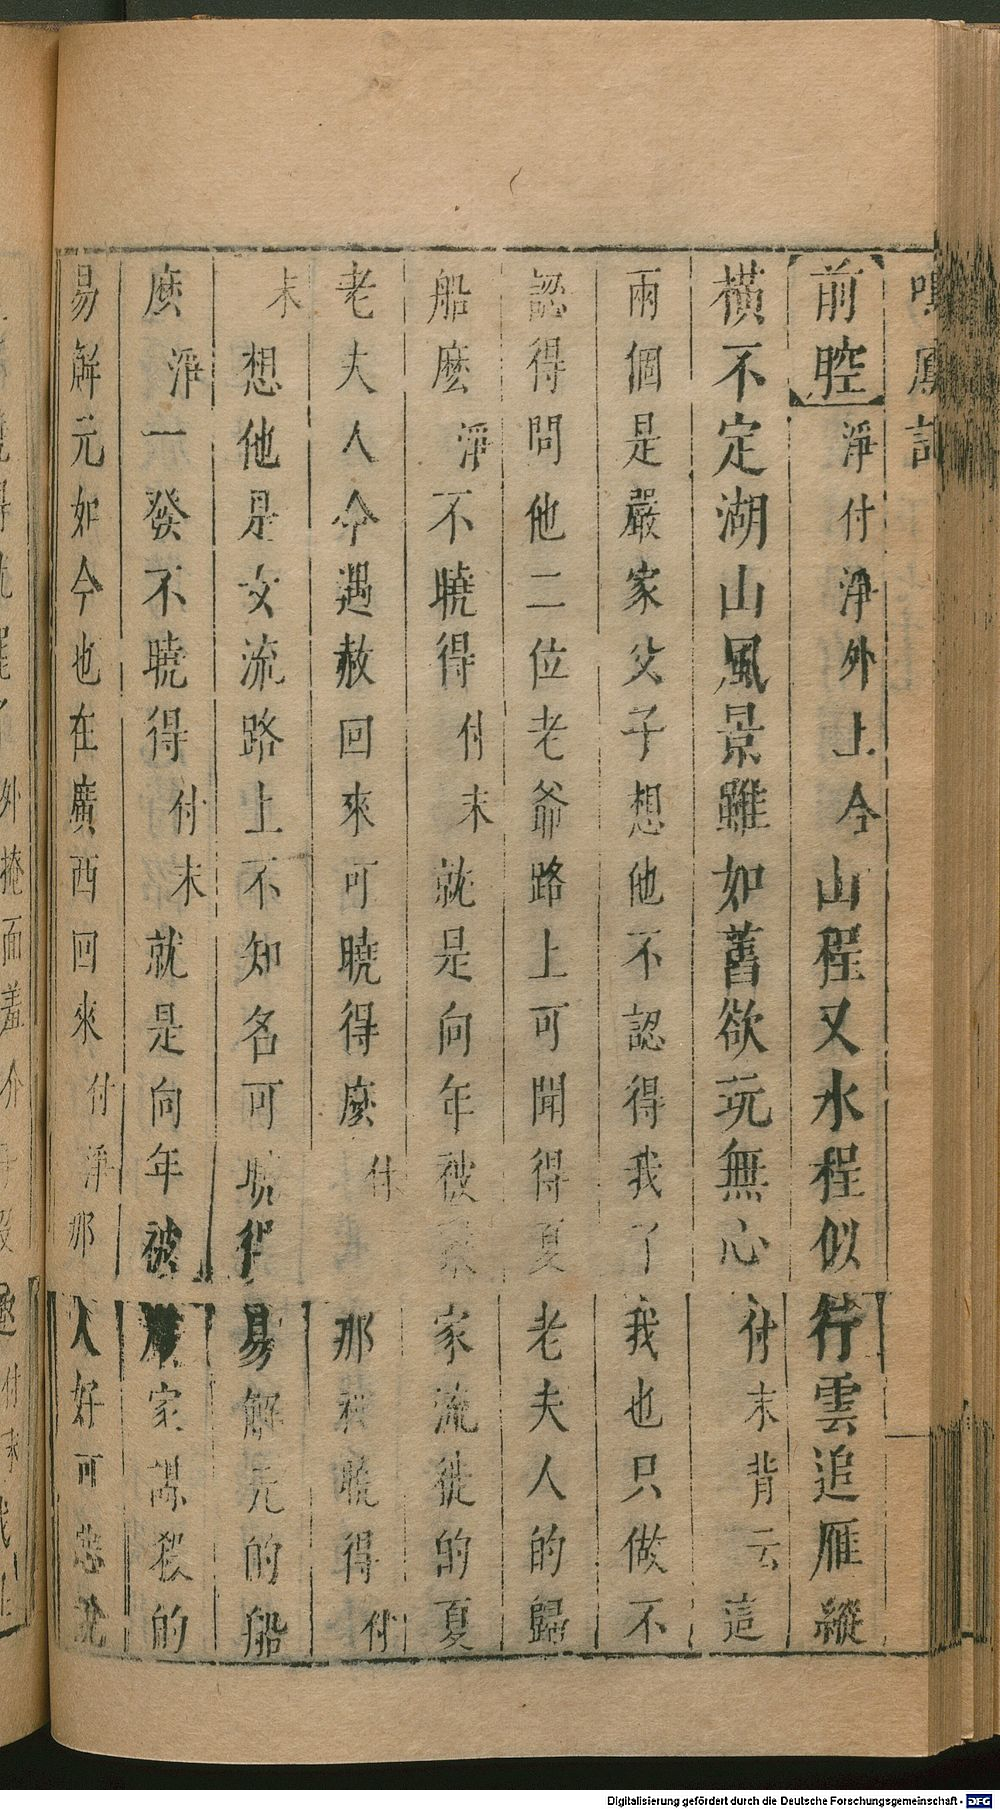 鳴鳳記
前腔淨付淨外上今山程又水程似行雲追雁縱
橫不定湖山風景雖如舊欲玩無心付末背云這
兩個是嚴家父子想他不認得我了我也只做不
認得問他二位老爺路上可聞得夏老夫人的歸
船麽淨不曉得付末就是向年被嚴家流徙的夏
老夫人今遇赦回來可曉得麽付那裡曉得付
末想他是女流路上不知名可曉得易解元的船
麽淨一發不曉得付末就是向年被嚴家謀殺的
易解元如今也在廣西回來付淨那人好可惡說
外掩面羞介
Digitalisierung gefördert durch die Deutsche Forschungsgemeinschaft - DFG